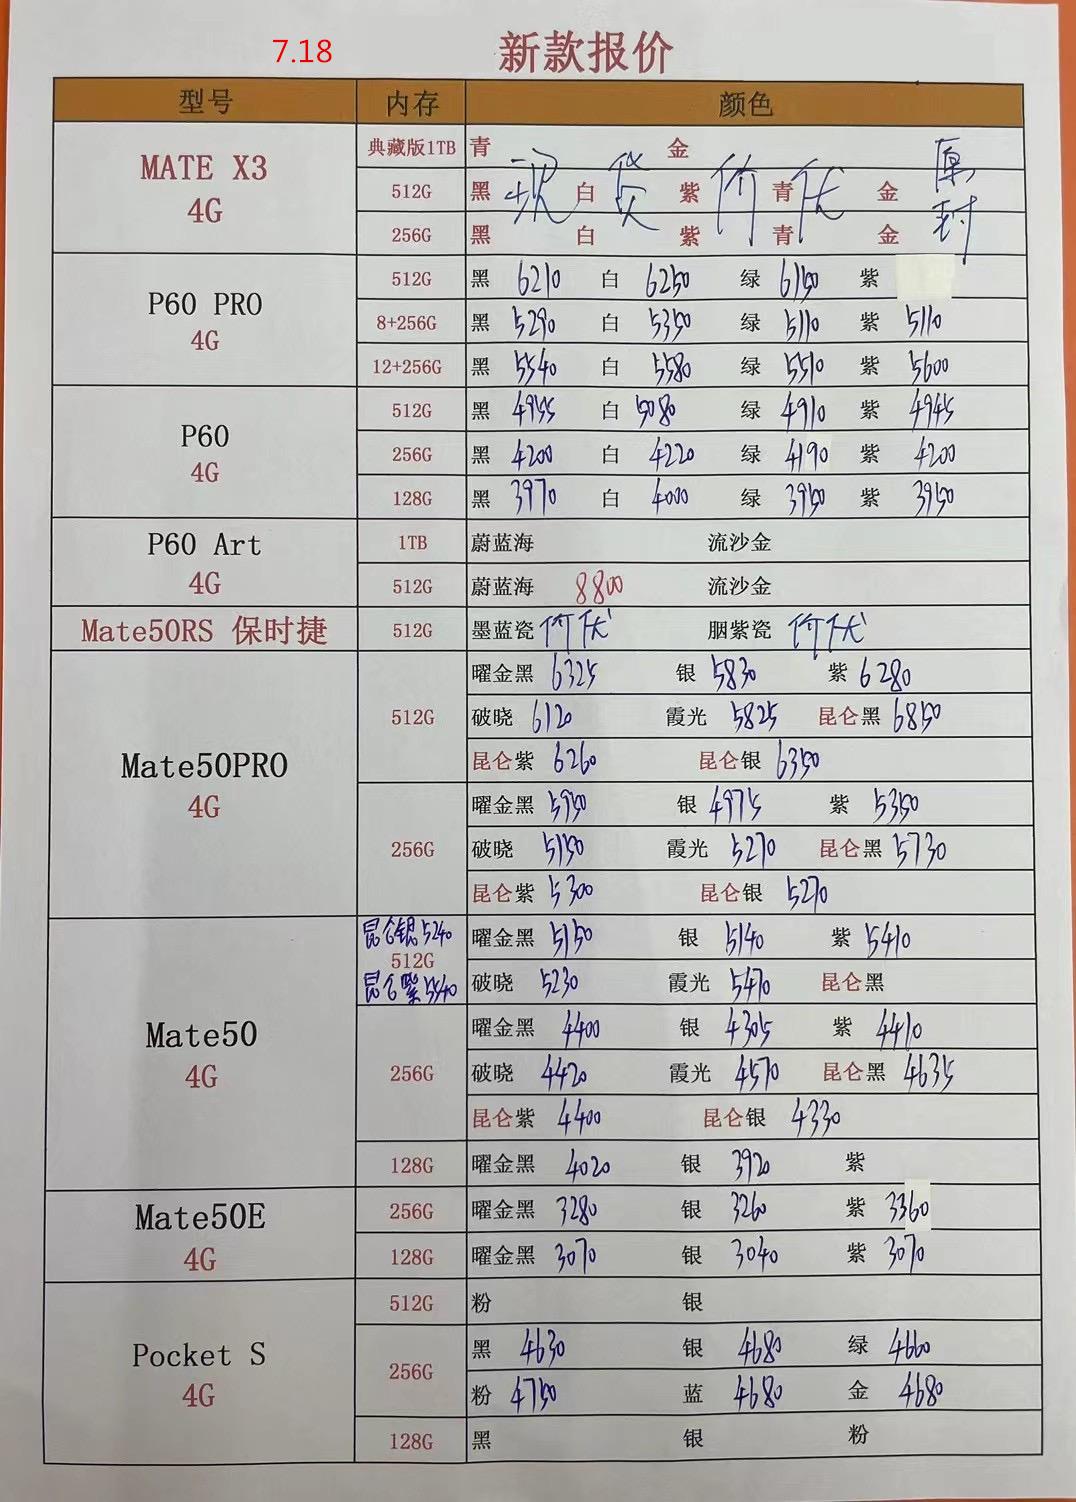 7.18 新款报价
型号 内存 颜色
MATE X3 4G
典藏版1TB 青 金
512G 黑 白 紫 青 金
256G 黑 白 紫 青 金
现货价优 原封
P60 PRO 4G
512G 黑 6210 白 6250 绿 6150 紫
8+256G 黑 5290 白 5350 绿 5110 紫 5110
12+256G 黑 5540 白 5580 绿 5510 紫 5600
P60 4G
512G 黑 4955 白 5080 绿 4910 紫 4945
256G 黑 4200 白 4220 绿 4190 紫 4200
128G 黑 3970 白 4000 绿 3950 紫 3950
P60 Art 4G
1TB 蔚蓝海 流沙金
512G 蔚蓝海 8800 流沙金
Mate50RS 保时捷 512G 墨蓝瓷 价优 胭紫瓷 价优
Mate50PRO 4G
512G 曜金黑 6325 银 5830 紫 6280
破晓 6120 霞光 5825 昆仑黑 6850
昆仑紫 6260 昆仑银 6350
256G 曜金黑 5950 银 4975 紫 5350
破晓 5150 霞光 5270 昆仑黑 5730
昆仑紫 5300 昆仑银 5270
Mate50 4G
昆仑银 5240
512G 曜金黑 5150 银 5140 紫 5410
昆仑紫 5540
破晓 5230 霞光 5470 昆仑黑
256G 曜金黑 4400 银 4305 紫 4410
破晓 4420 霞光 4570 昆仑黑 4635
昆仑紫 4400 昆仑银 4330
128G 曜金黑 4020 银 3920 紫
Mate50E 4G
256G 曜金黑 3280 银 3260 紫 3360
128G 曜金黑 3070 银 3040 紫 3070
Pocket S 4G
512G 粉 银
256G 黑 4630 银 4680 绿 4660
粉 4750 蓝 4680 金 4680
128G 黑 银 粉